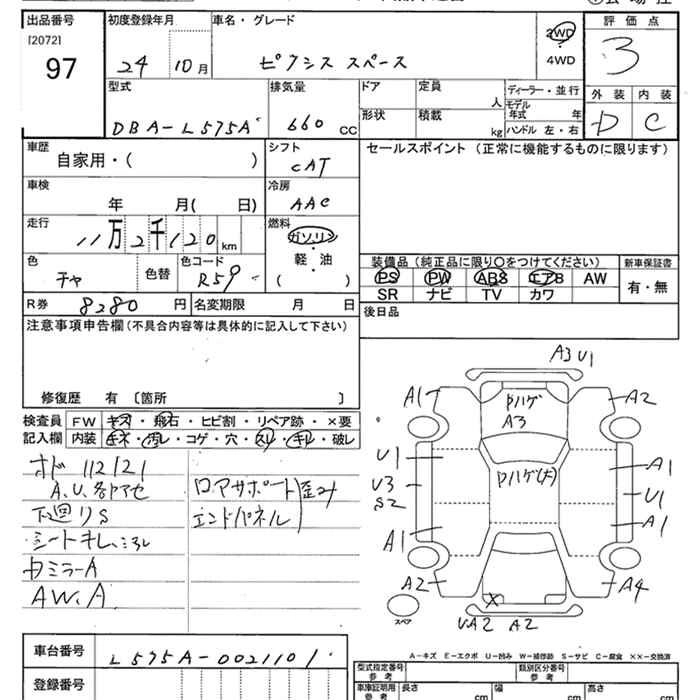 出品番号 初度登録年月 車名・グレード 評価点
[2072] 97
24 10月 ピクシス スペース 2WD・4WD 3
型式 排気量 ドア 定員 人 ディーラー・並行 外装 内装
DBA-L575A 660 CC 形状 積載 kg モデル年式 年 ハンドル 左・右 D C
車歴 シフト セールスポイント (正常に機能するものに限ります)
自家用・( ) CAT
車検 冷房
年 月( 日) AAC
走行 燃料
11万2千120km ガソリン
軽・油
( )
色 色替 色コード 装備品 (純正品に限り○をつけてください) 新車保証書
チャ R59 PS PW ABS エアB AW 有・無
SR ナビ TV カワ
R券 8280円 名変期限 月 日 後日品
注意事項申告欄(不具合内容等は具体的に記入して下さい)
修復歴 有 〔箇所 〕
検査員 FW キズ・飛石・ヒビ割・リペア跡・×要
記入欄 内装 キズ・汚レ・コゲ・穴・スレ・キレ・破レ
オド 112121
A.U.各部アセ
下廻りS
シートキレ、
カミラーA
AW.A
ロアサポート歪み
エンドパネル
A3 U1
A1 PハゲA3 A2
U1 Pハゲ(大) A1
U3 U1
S2
A1 A1
A2 X A4
スペア UA2 A2
A-キズ E-エクボ U-凹み W-補修跡 S-サビ C-腐食 ××-交換済
車台番号 L575A-0021101
登録番号
型式指定番号 類別区分番号
参考 参考
車庫証明用 長さ cm 幅 cm 高さ cm
参考